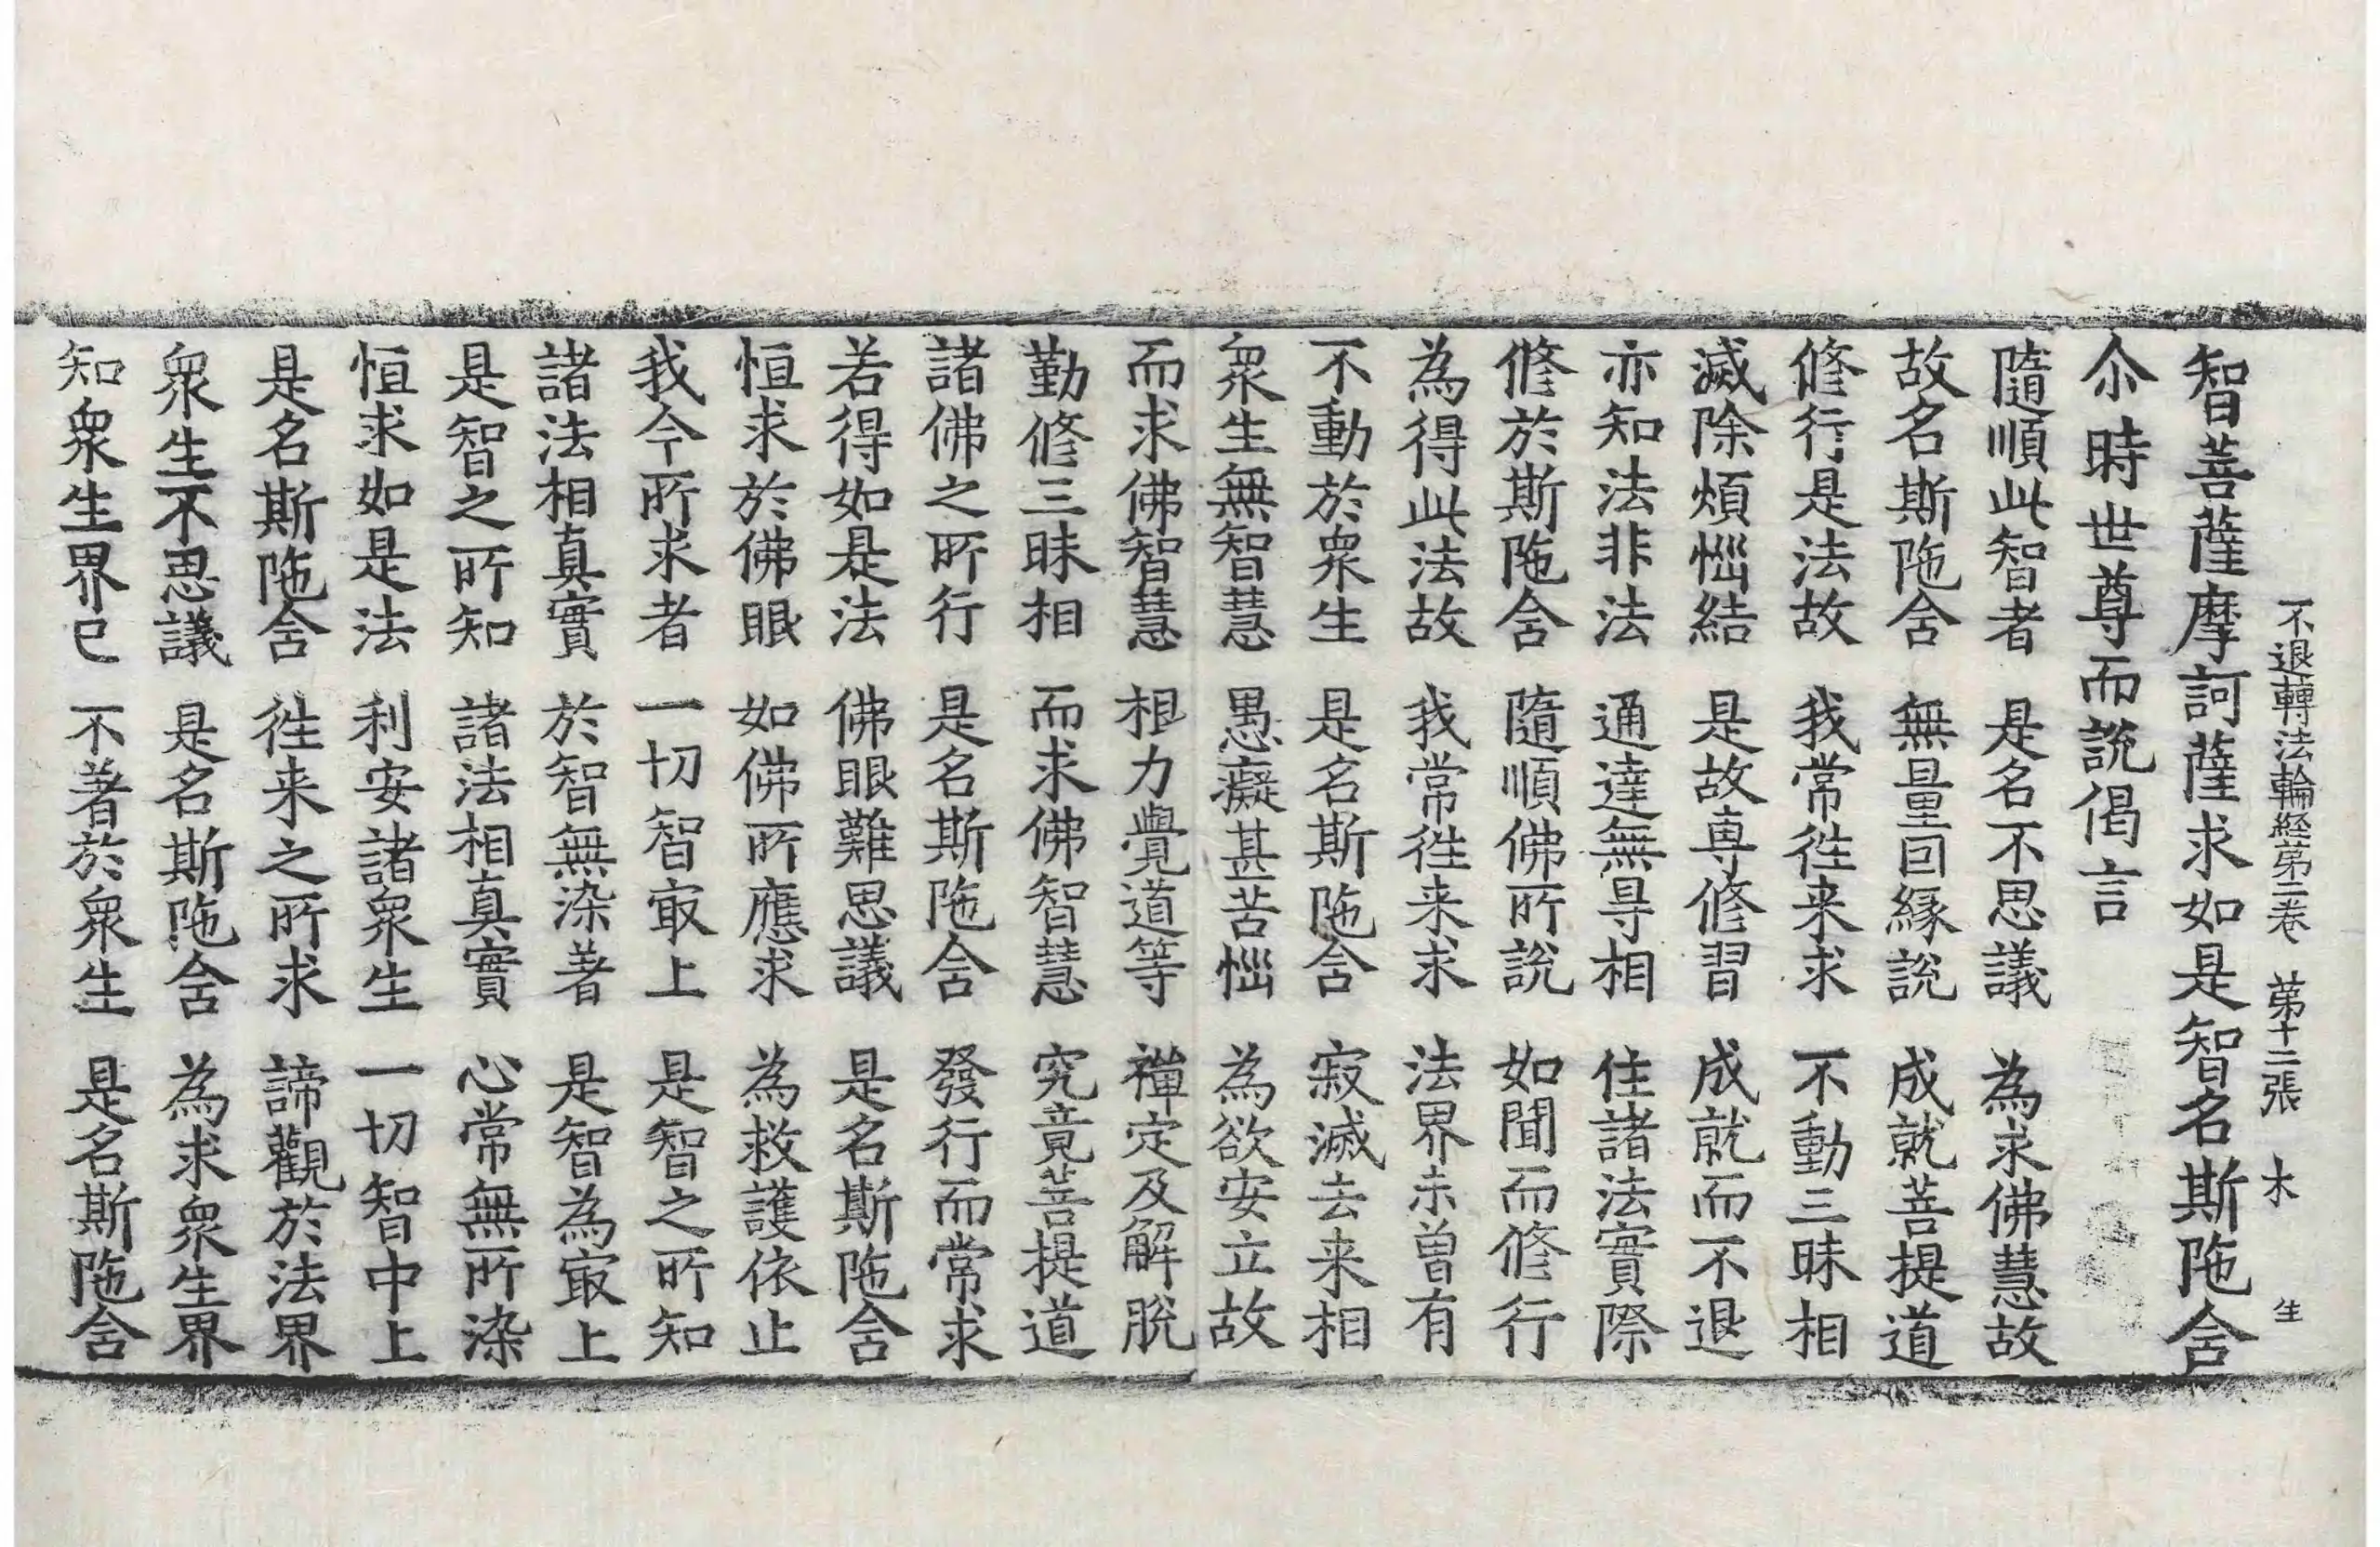 不退轉法輪経苐二卷 苐十二張 木 生
智菩薩摩訶薩求如是智名斯陁舍
尒時世尊而說偈言
隨順此智者 是名不思議 為求佛慧故
故名斯陁舍 無量因緣說 成就菩提道
修行是法故 我常徃来求 不動三昧相
滅除煩惱結 是故専修習 成就而不退
亦知法非法 通達無㝵相 住諸法實際
修於斯陁舍 隨順佛所說 如聞而修行
為得此法故 我常徃来求 法界未曾有
不動於衆生 是名斯陁舍 寂滅去来相
衆生無智慧 愚癡甚苦惱 為欲安立故
而求佛智慧 根力覺道等 禪定及解脫
勤修三昧相 而求佛智慧 究竟菩提道
諸佛之所行 是名斯陁舍 發行而常求
若得如是法 佛眼難思議 是名斯陁舍
恒求於佛眼 如佛所應求 為救護依止
我今所求者 一切智㝡上 是智之所知
諸法相真實 於智無染著 是智為㝡上
是智之所知 諸法相真實 心常無所染
恒求如是法 利安諸衆生 一切智中上
是名斯陁舍 徃来之所求 諦觀於法界
衆生不思議 是名斯陁舍 為求衆生界
知衆生界已 不著於衆生 是名斯陁舍